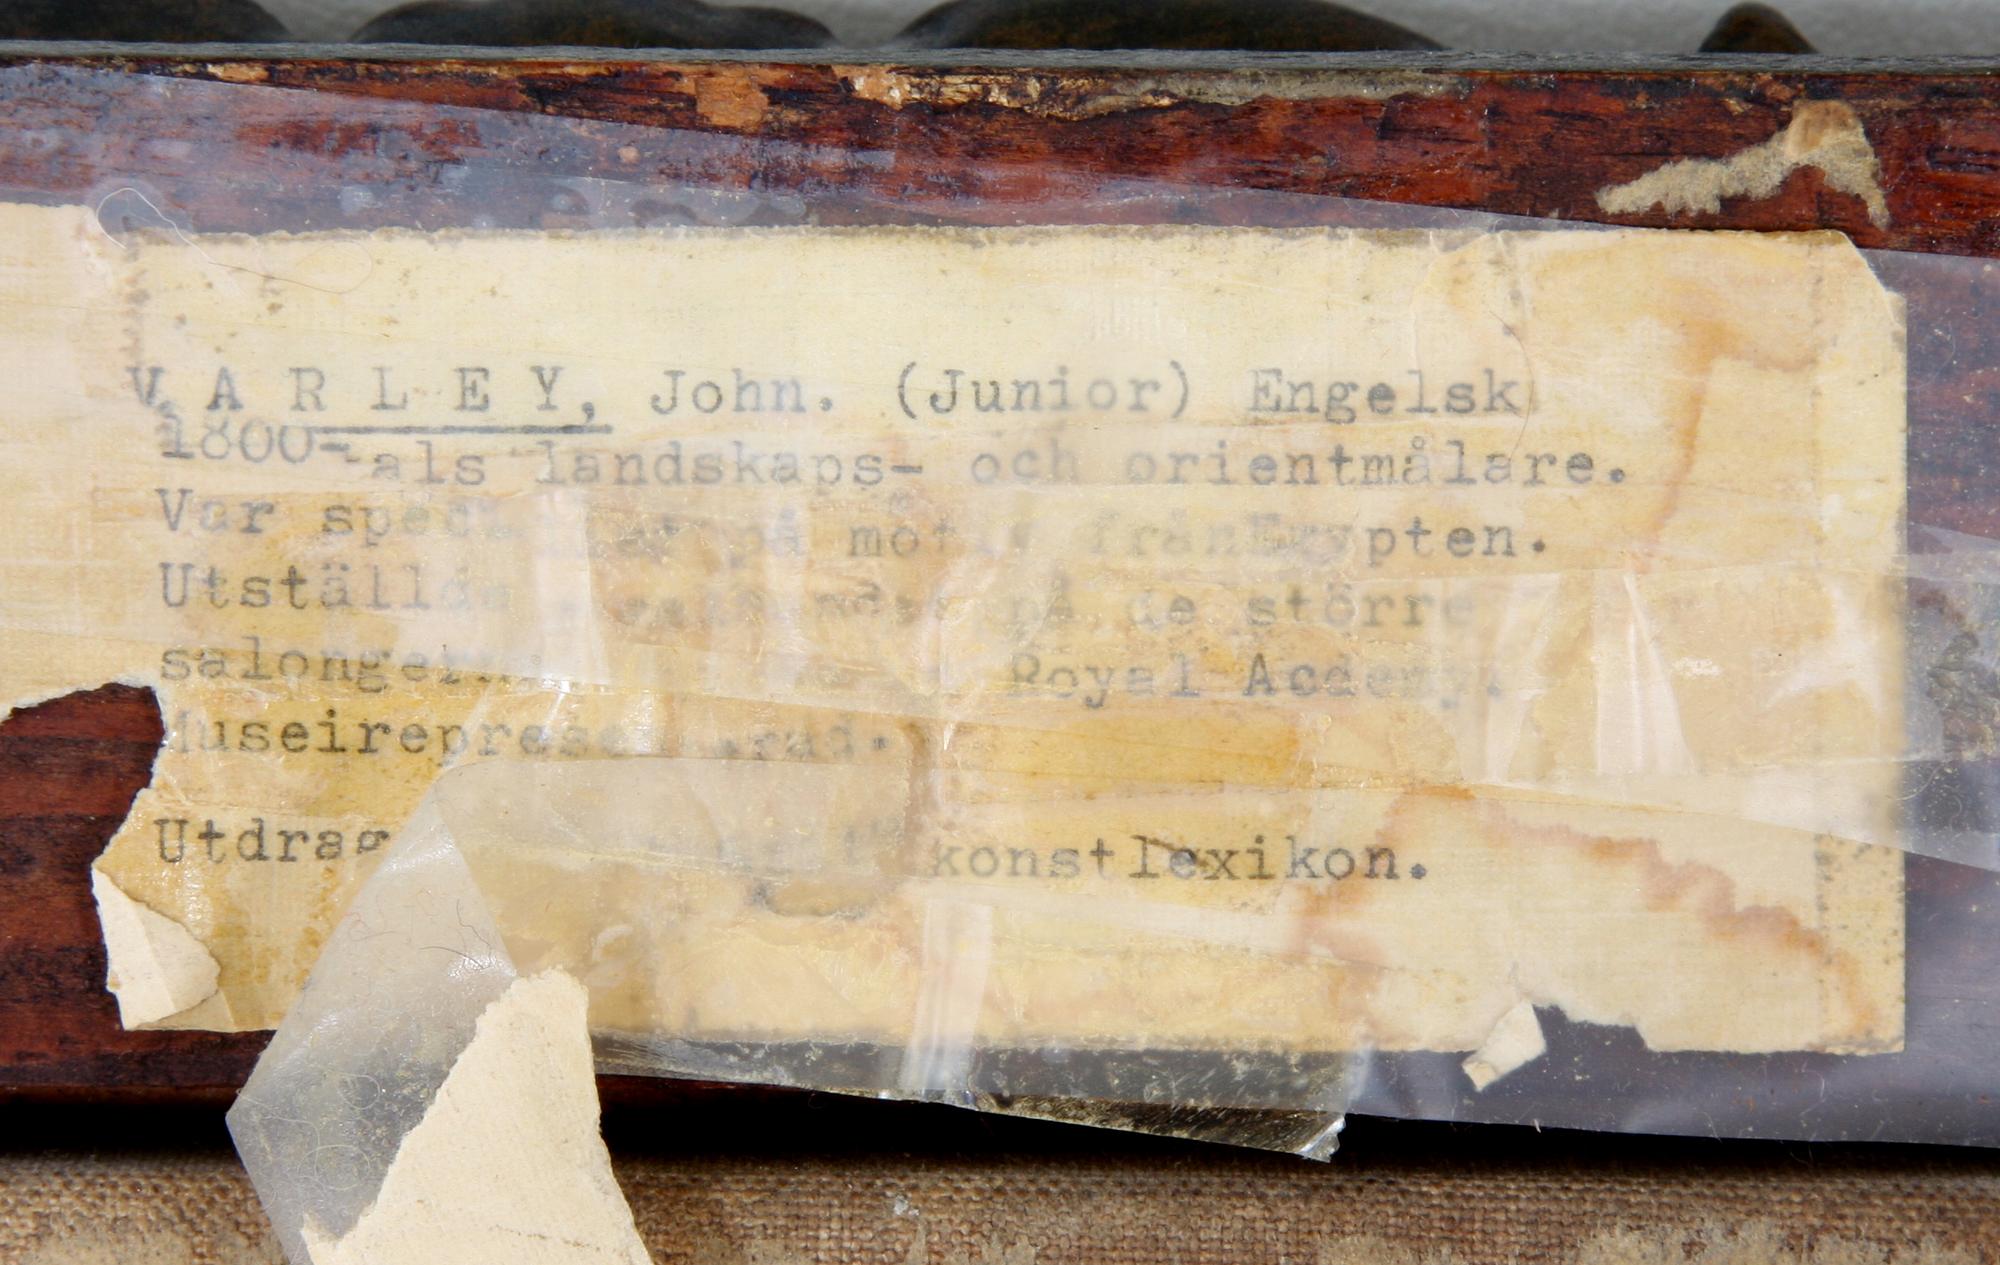 V A R L E Y, John. (Junior) Engelsk
1800-als landskaps- och orientmålare.
Var på motiv frånEgypten.
Utställde på de större
Royal Acdemy.
Museirepresenterad.
Utdrag konstlexikon.